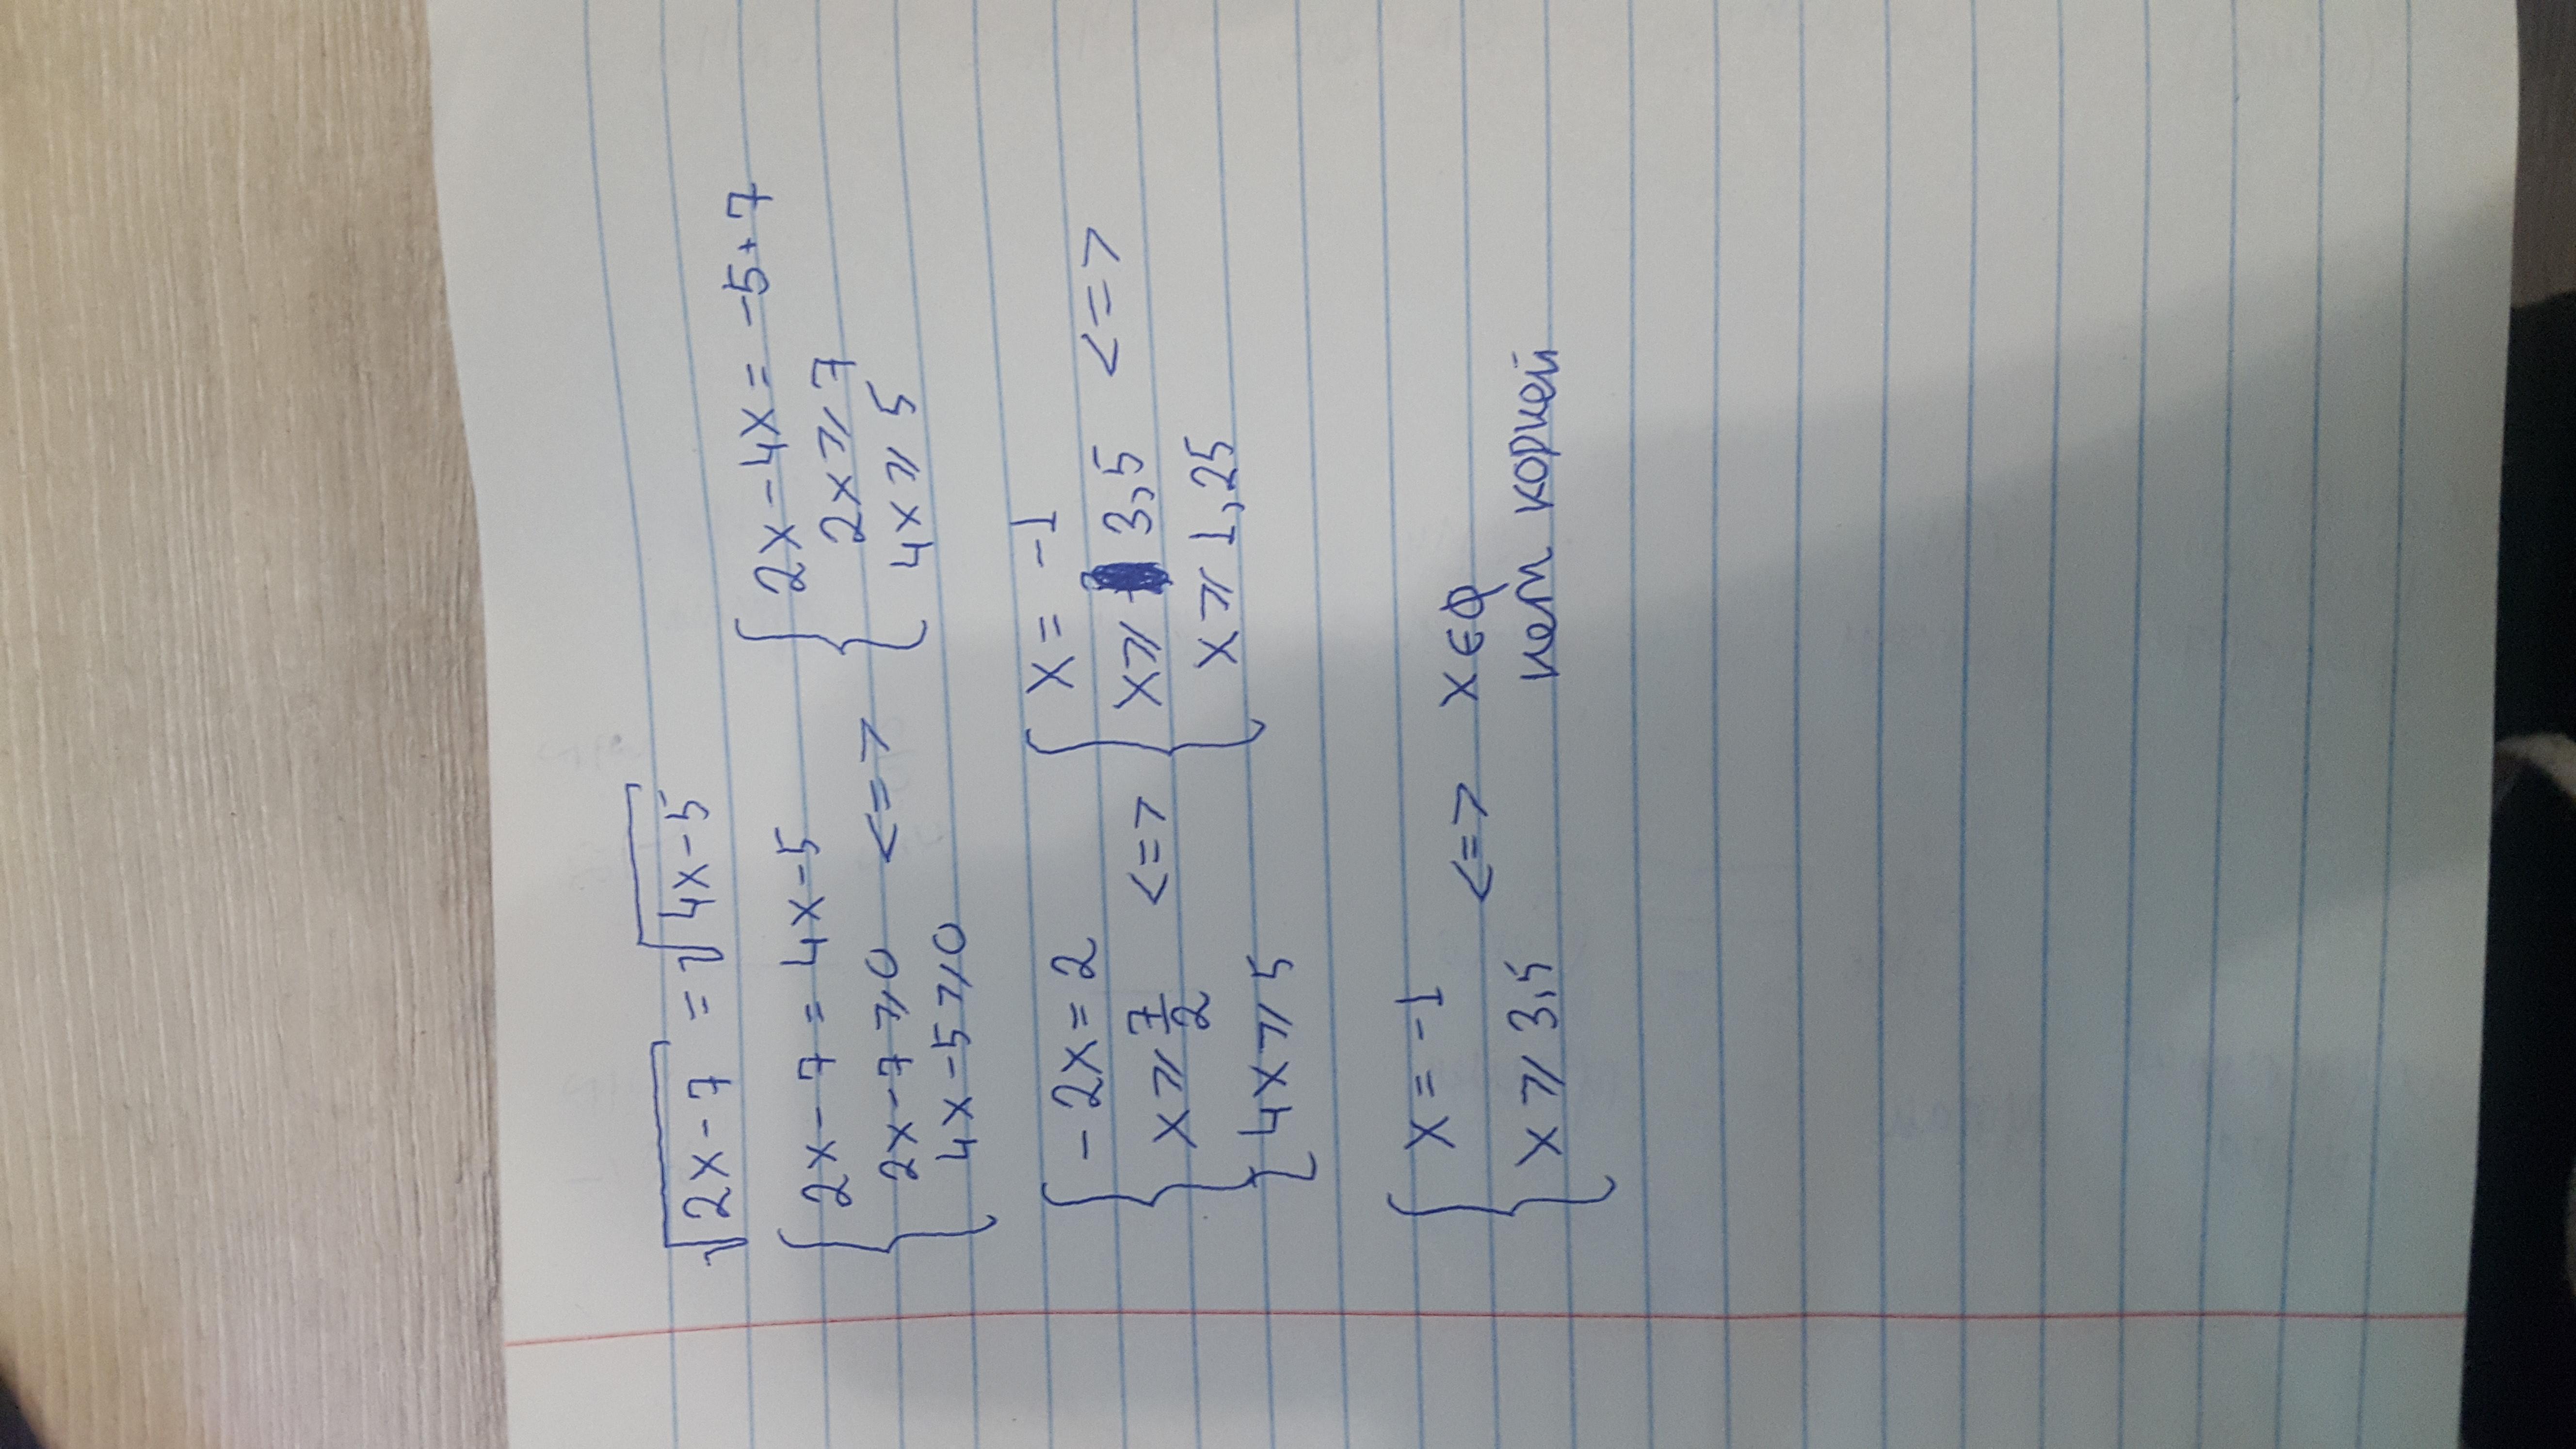 √2x-7 = √4x-5
{ 2x-7 = 4x-5
2x-7 ⩾ 0 <=>
4x-5 ⩾ 0
{ 2x-4x = -5+7
2x ⩾ 7
4x ⩾ 5
{ -2x = 2
x ⩾ 7/2 <=>
4x ⩾ 5
{ x = -1
x ⩾ 3,5 <=>
x ⩾ 1,25
{ x = -1
x ⩾ 3,5
<=> x ∈ ∅
нет корней